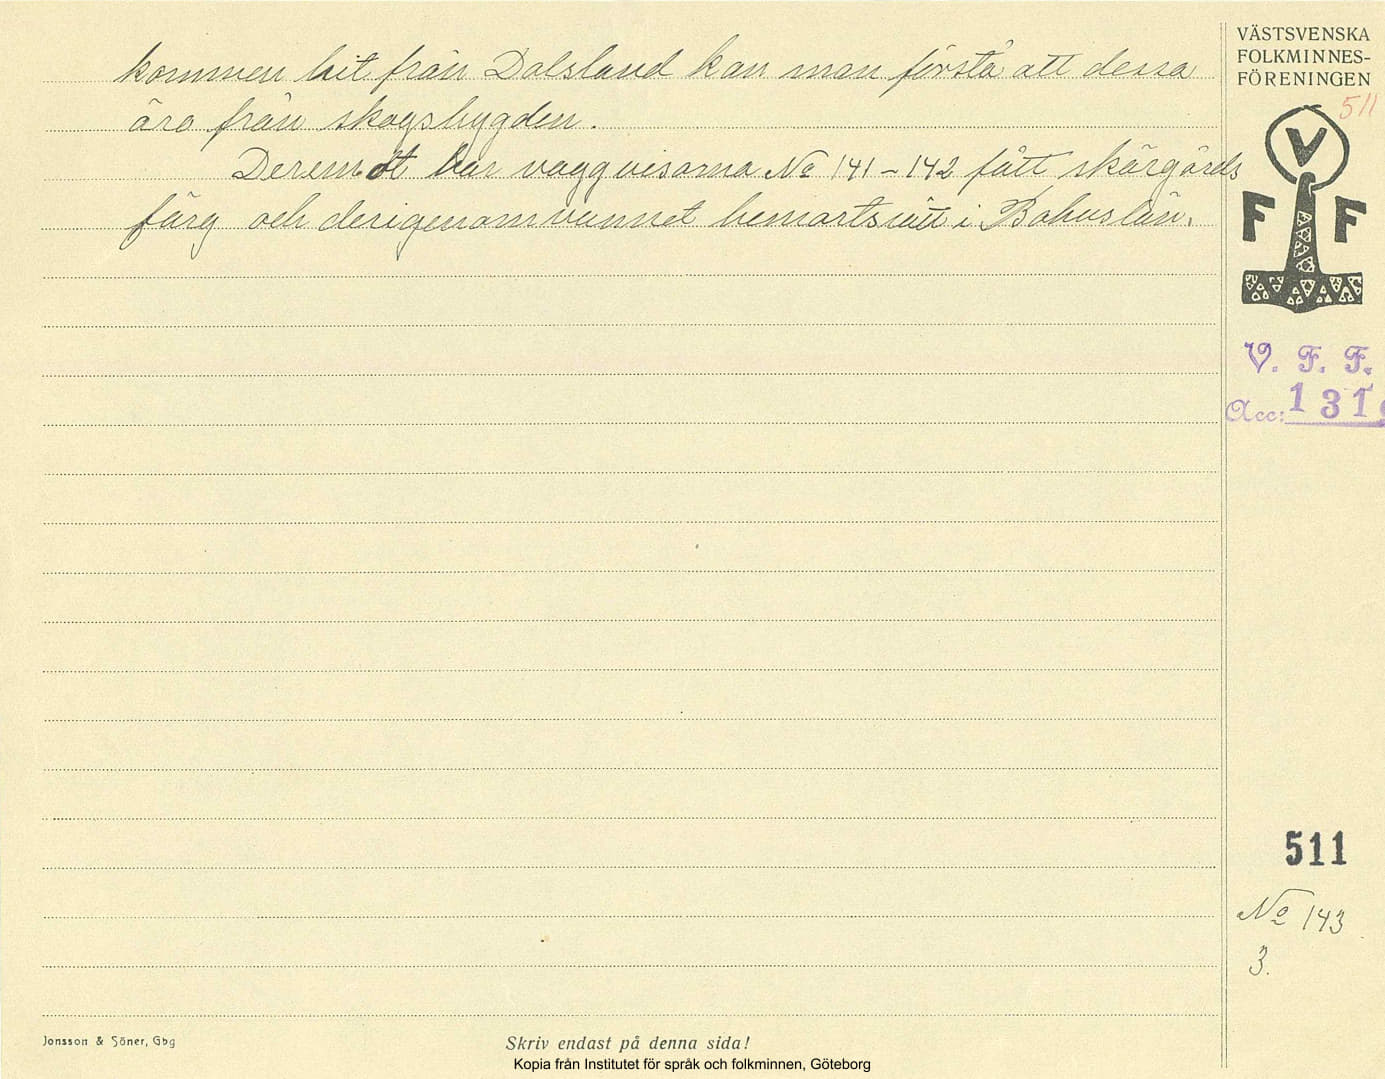 kommen hit från Dalsland kan man förstå att dessa
äro från skogsbygden.
Deremot har vaggvisorna No 141-142 fått skärgårds
färg och derigenom vunnet hemortsrätt i Bohuslän.
VÄSTSVENSKA
FOLKMINNES-
FÖRENINGEN
511
V
F F
V. F. F.
Acc: 131
511
No 143
3.
Jonsson & Söner, Gbg
Skriv endast på denna sida!
Kopia från Institutet för språk och folkminnen, Göteborg